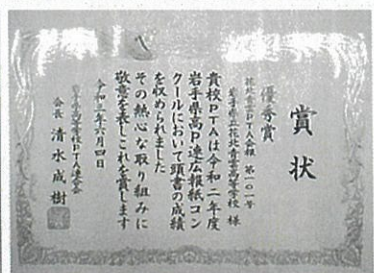 賞状
優秀賞
花北青雲PTA会報 第一〇一号
岩手県立花北青雲高等学校 様
貴校PTAは令和二年度
岩手県高P連広報紙コン
クールにおいて頭書の成績
を収められました
その熱心な取り組みに
敬意を表しこれを賞します
令和三年六月四日
岩手県高等学校PTA連合会
会長 清水成樹